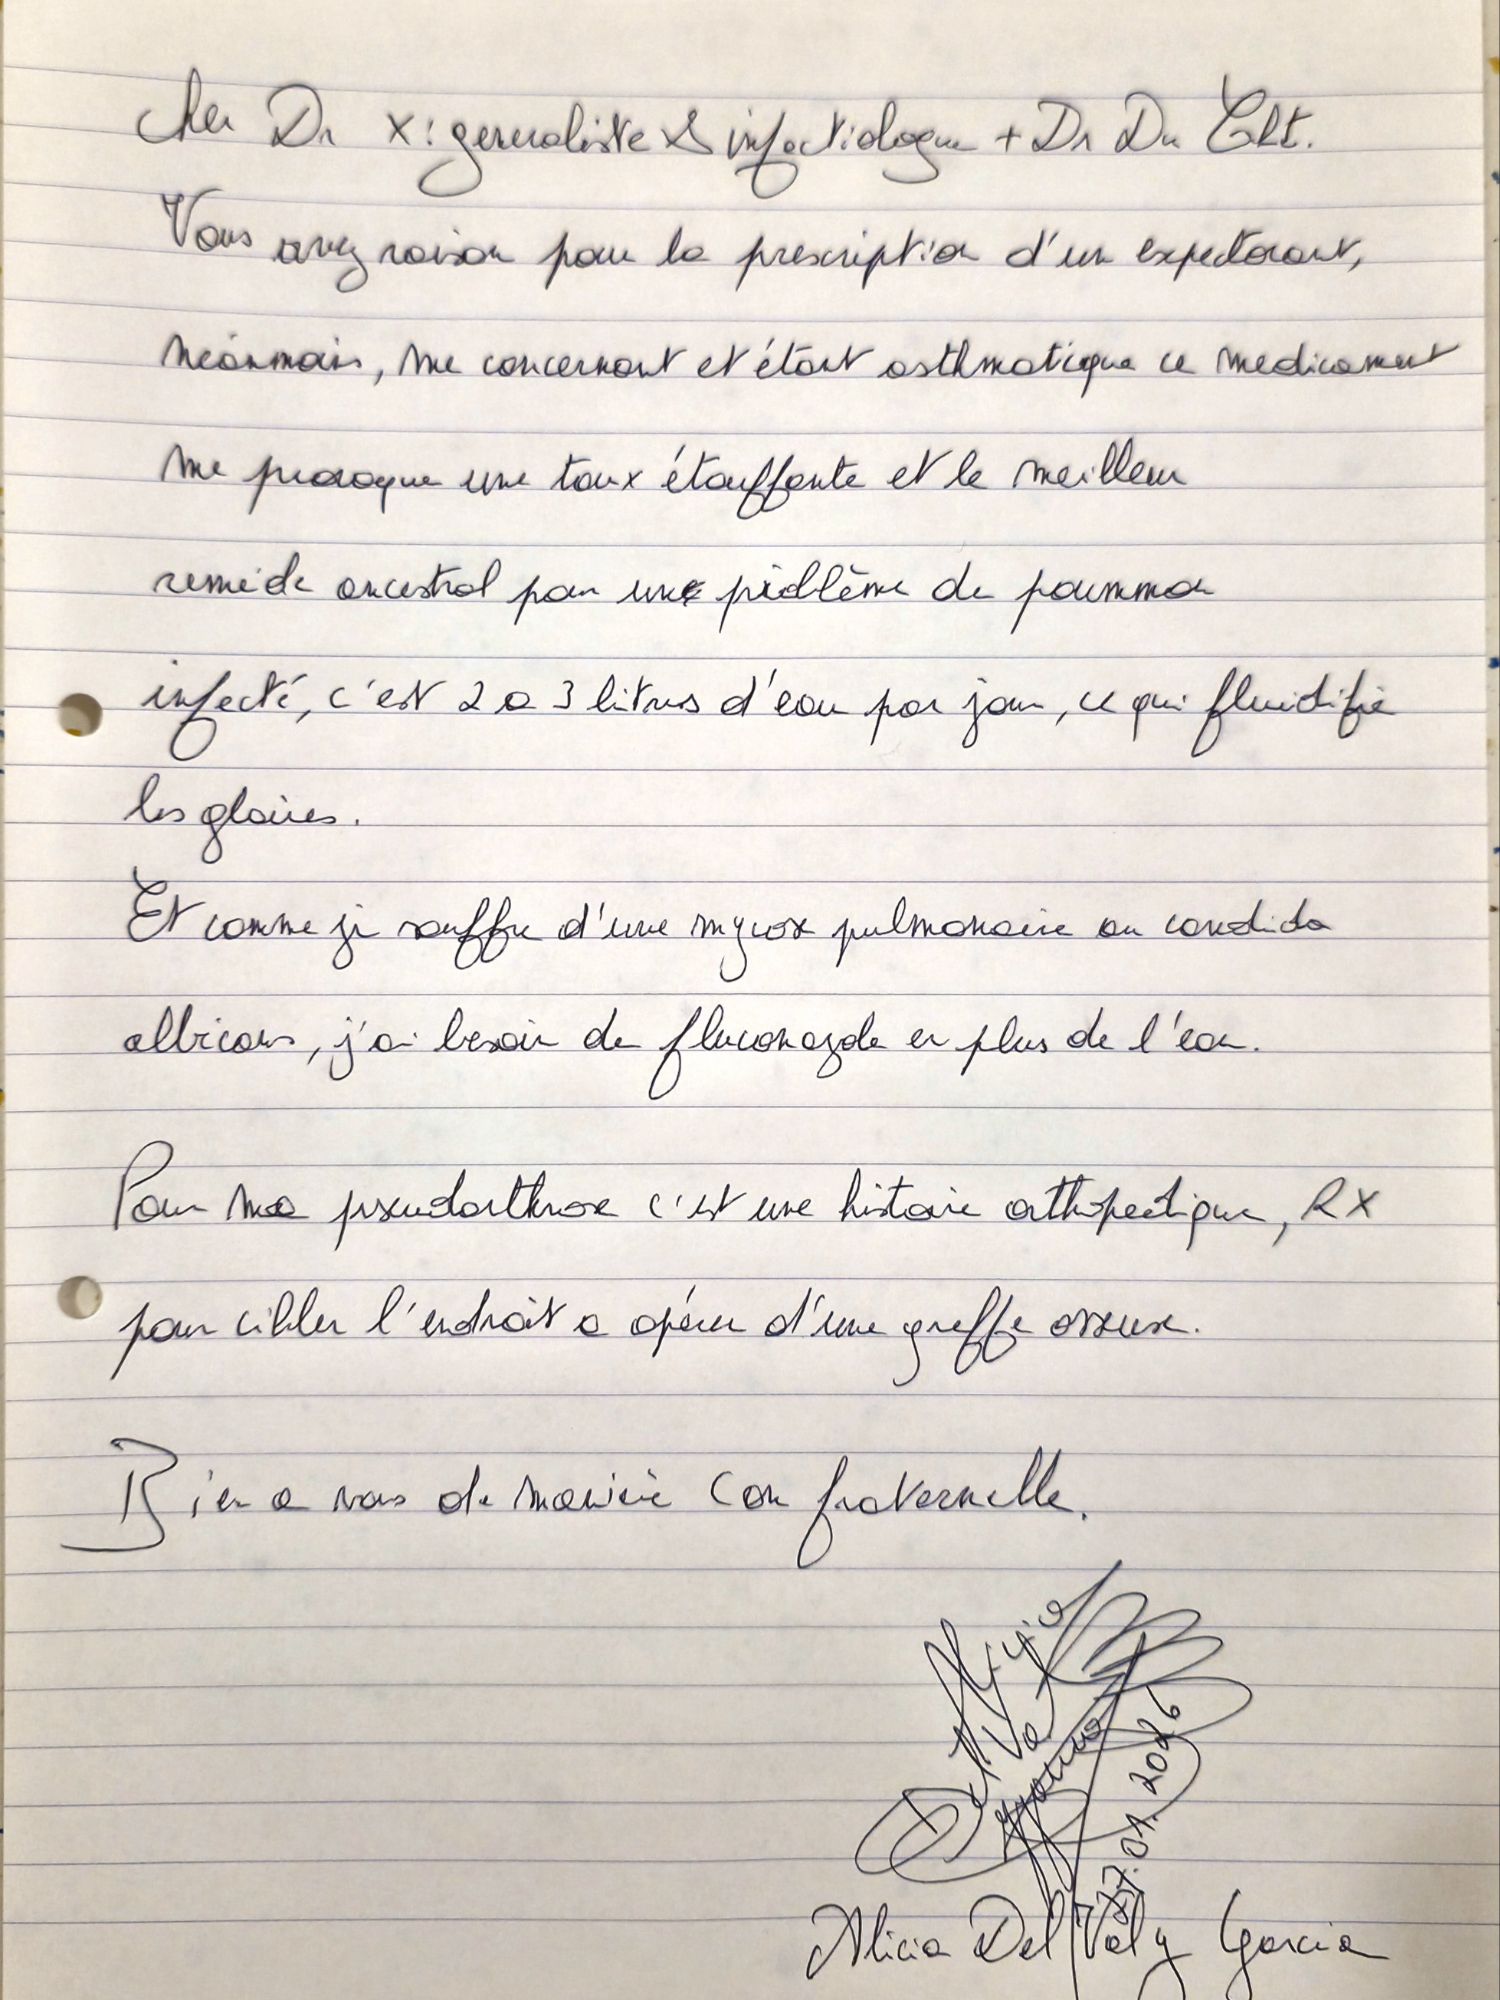 Cher Dr X: generaliste & infectiologue + Dr Du
Vous avez raison pour la prescription d'un expectorant,
néanmais, me concernant et étant asthmatique ce medicament
me provoque une toux étouffante et le meilleur
reméde ancestral pour une problème de poummon
infecté, c'est 2 a 3 litres d'eau par jour, ce qui fluidifie
les glaires.
Et comme je souffre d'une mycose pulmonaire au candida
albicans, j'ai besoin de fluconazole en plus de l'eau.
Pour ma pseudarthrose c'est une histoire orthopedique, RX
pour cibler l'endroit a opérer d'une greffe osseuse.
Bien a vous de manière Con fraternelle.
Alicia
Del Val y
Garcia
27.01.2026
Alicia Del Val y Garcia